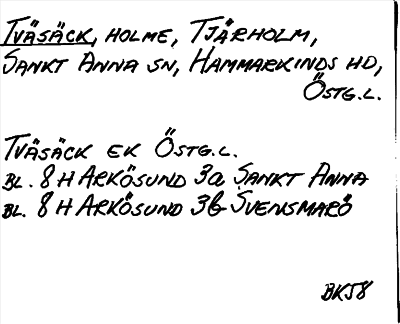 TVÄSÄCK, HOLME, TJÄRHOLM,
SANKT ANNA SN, HAMMARKINDS HD,
ÖSTG.L.
TVÄSÄCK EK ÖSTG.L.
BL. 8 H ARKÖSUND 3a SANKT ANNA
BL. 8 H ARKÖSUND 3b SVENSMARÖ
BK58